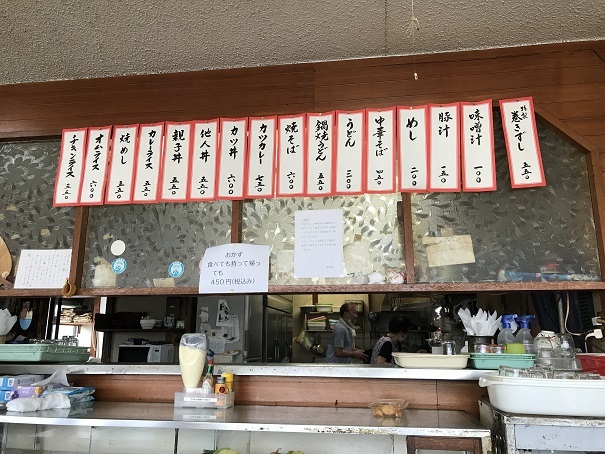 特製 巻きずし 五五〇
味噌汁 一〇〇
豚汁 一五〇
めし 二〇〇
中華そば 四五〇
うどん 三〇〇
鍋焼うどん 五五〇
焼そば 六〇〇
カツカレー 七五〇
カツ丼 六〇〇
他人丼 五五〇
親子丼 五五〇
カレーライス 五五〇
焼めし 五五〇
オムライス 六〇〇
チキンライス
おかず
食べても持って帰っ
ても
450円(税込み)